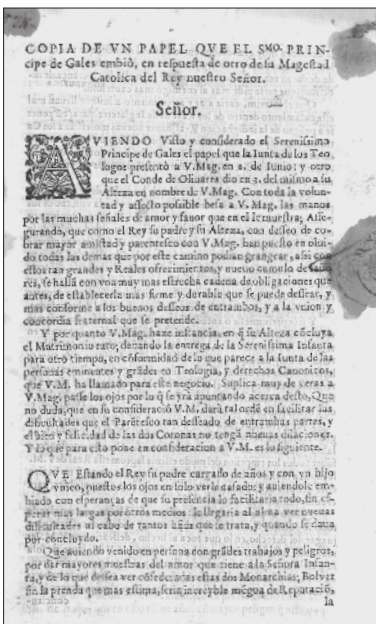 COPIA DE VN PAPEL QVE EL Smo. PRIN-
cipe de Gales embiò, en respuesta de otro de su Magestad
Catolica del Rey nuestro Señor.
Señor.
AVIENDO Visto y considerado el Serenissimo
Principe de Gales el papel que la Iunta de los Teo
logos presentò a V.Mag. en 2. de Iunio; y otro
que el Conde de Oliuares dio en 3. del mismo a su
Alteza en nombre de V.Mag. Con toda la volun-
tad y afecto possible besa a V. Mag. las manos
por las muchas señales de amor y fauor que en el le muestra; Asse-
gurando, que como el Rey su padre y su Alteza, con desseo de co-
brar mayor amistad y parentesco con V.Mag. han puesto en olui-
do todas las demas que por este camino podian grangear, assi con
estos tan grandes y Reales ofrecimientos, y nueuo cumulo de fauo
res, se halla con vna muy mas estrecha cadena de obligaciones que
antes, de establecerla mas firme y durable que se puede dessear, y
mas conforme a los buenos desseos de entrambos, y a la vnion y
concordia fraternal que se pretende.
Y por quanto V.Mag. haze instancia, en q̃ su Alteza cõcluya
el Matrimonio rato, dexando la entrega de la Serenissima Infanta
para otro tiempo, en cõformidad de lo que parece a la Iunta de las
personas eminentes y grãdes en Teologia, y derechos Canonicos,
que V.M. ha llamado para este negocio. Suplica muy de veras a
V.Mag. passe los ojos por lo q̃ se yrà apuntando acerca desto, Que
no duda, que en su consideraciõ V.M. darà tal ordẽ en facilitar las
dificultades que el Parẽtesco tan desseado de entrambas partes, y
el bien y felicidad de las dos Coronas no tengã nueuas dilaciones.
Y lo que para esto pone en consideracion a V.M. es lo siguiente.
QVE Estando el Rey su padre cargado de años y con vn hijo
vnico, puestos los ojos en solo verle casado; y auiendole em-
biado con esperanças de que su presencia lo facilitaria todo, sin es-
perar mas largas por otros medios le llegaria al alma ver nueuas
dificultades al cabo de tantos años que se trata, y quando se daua
por concluydo.
Que auiendo venido en persona con grãdes trabajos y peligros,
por dar mayores muestras del amor que tiene a la Señora Infan-
ta, y de lo que dessea ver cõfederadas estas dos Monarchias; Bolver
sin la prenda que mas estima, seria increyble mẽgua de Reputaciõ,
la